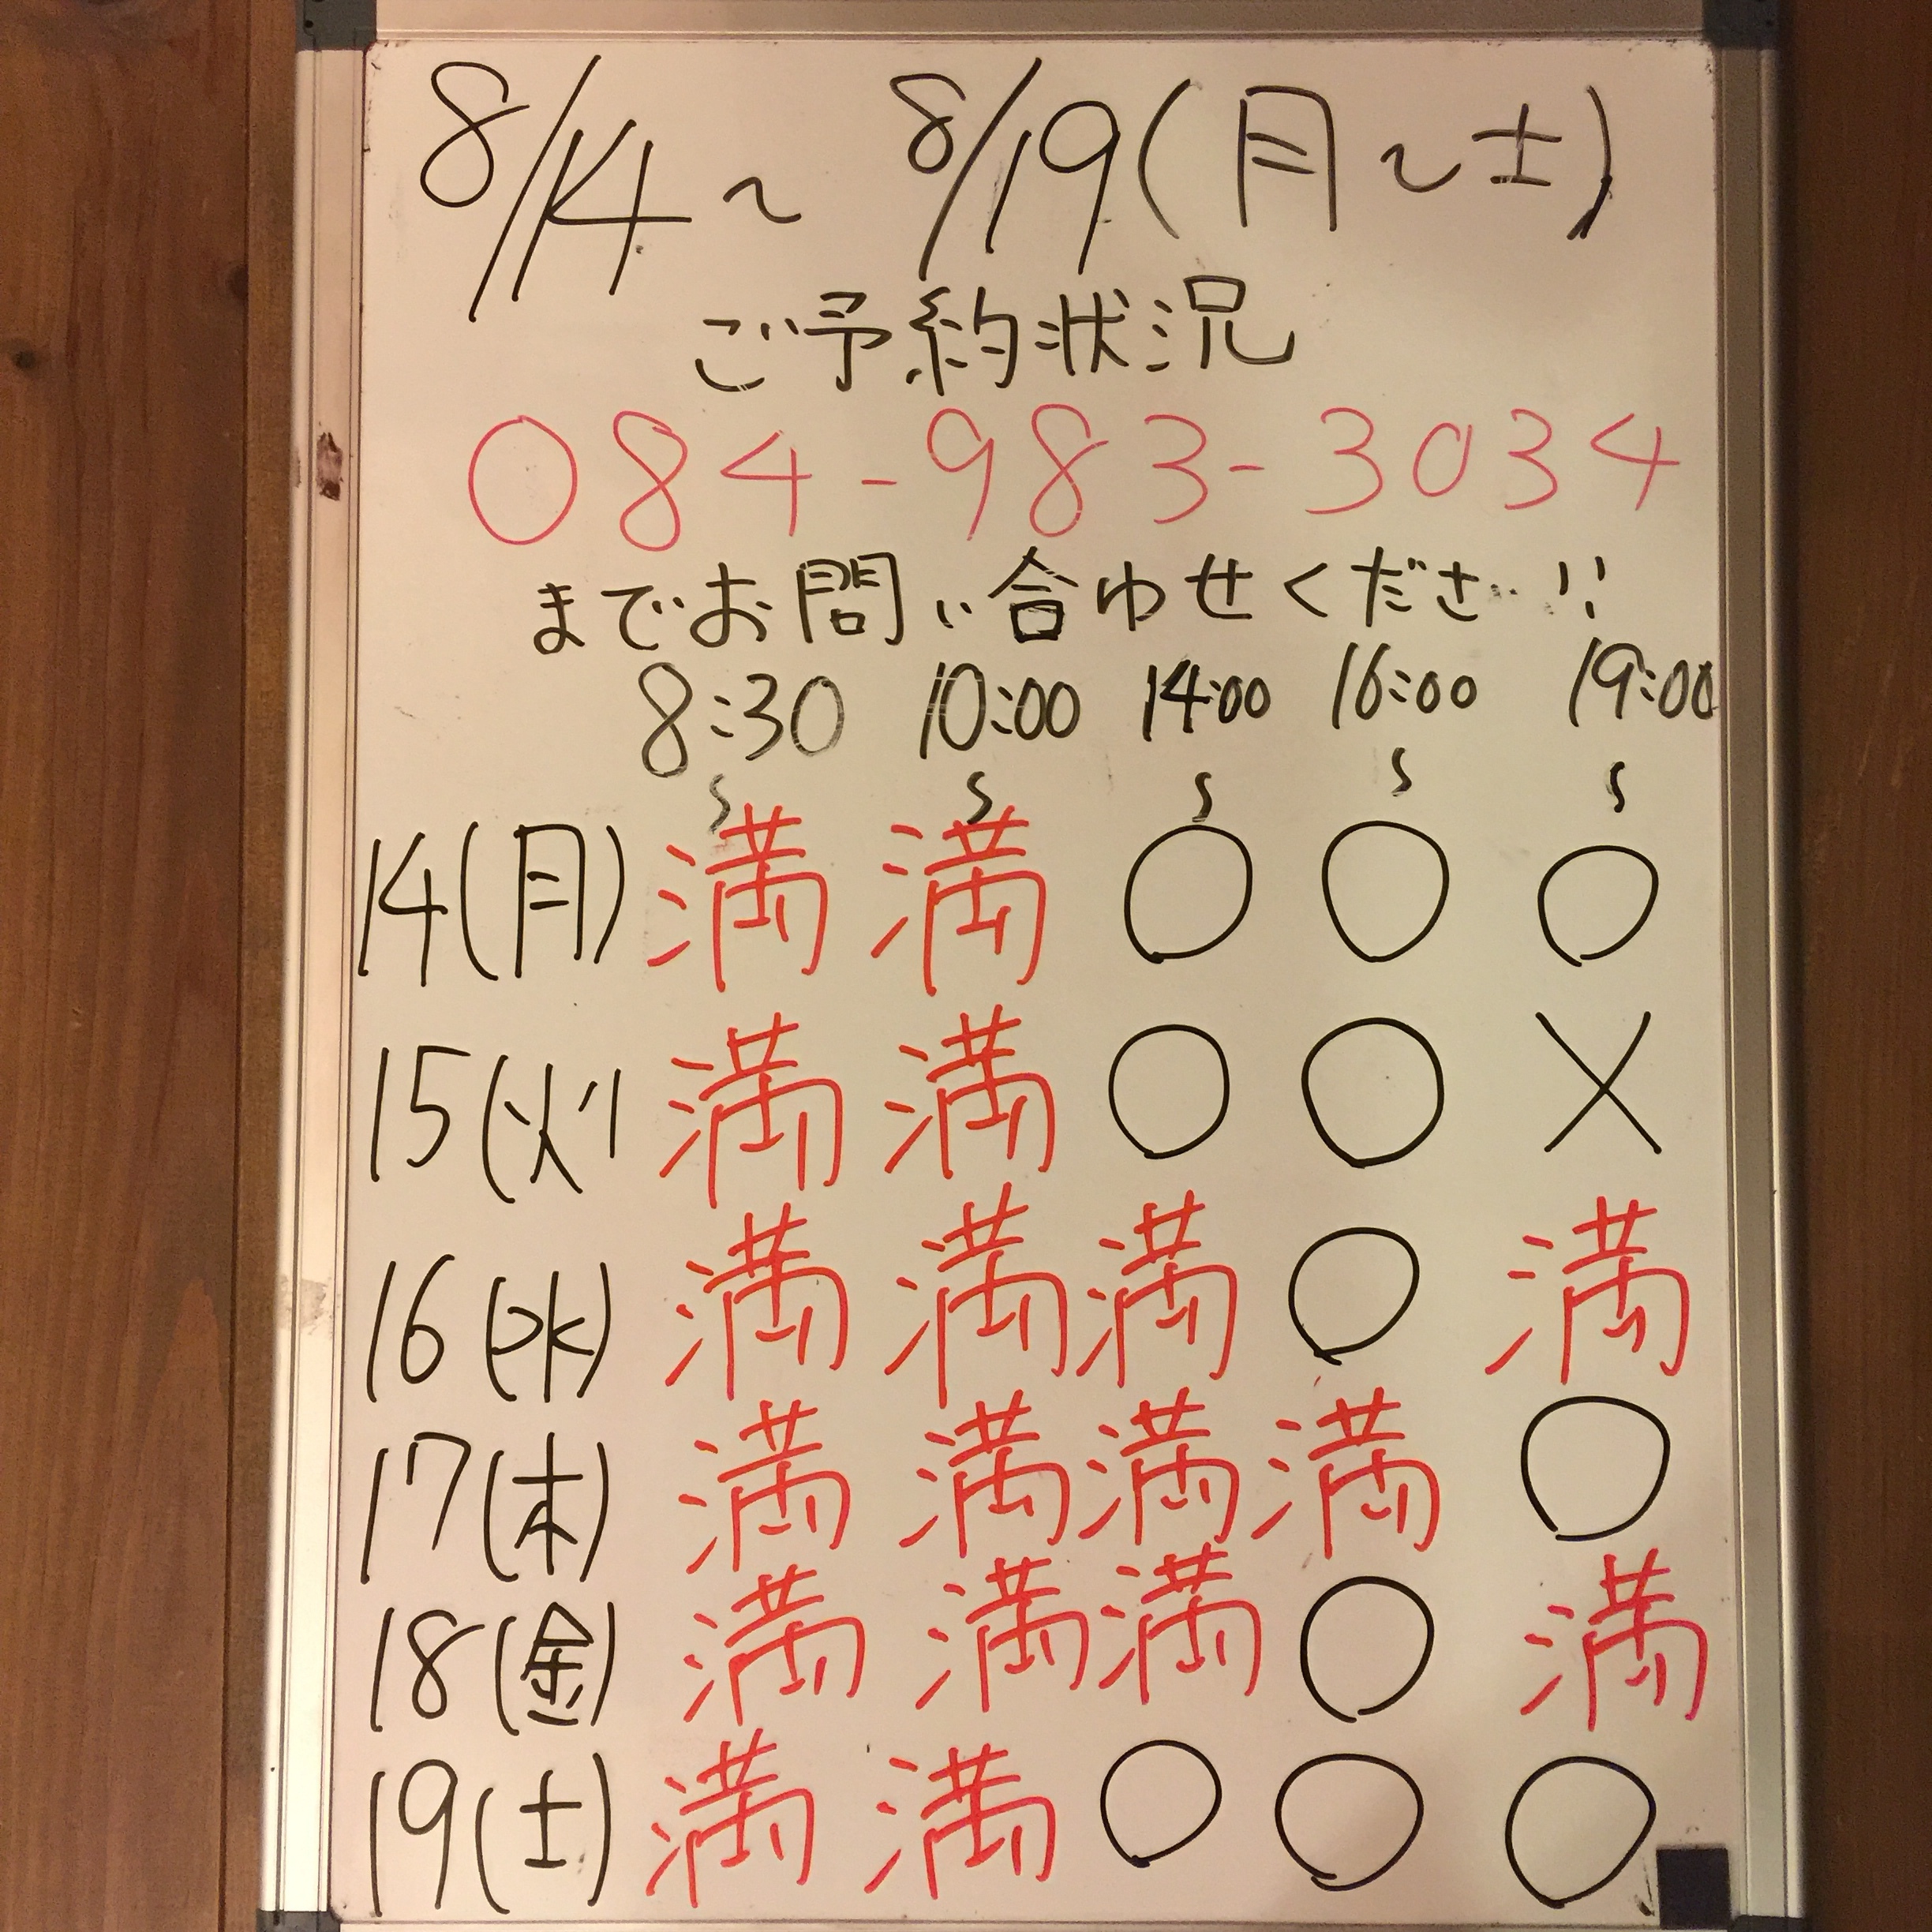 8/14〜8/19(月〜土)
ご予約状況
084-983-3034
までお問い合わせください!!
8:30 10:00 14:00 16:00 19:00
〜 〜 〜 〜 〜
14(月) 満 満 ○ ○ ○
15(火) 満 満 ○ ○ ×
16(水) 満 満 満 ○ 満
17(木) 満 満 満 満 ○
18(金) 満 満 満 ○ 満
19(土) 満 満 ○ ○ ○